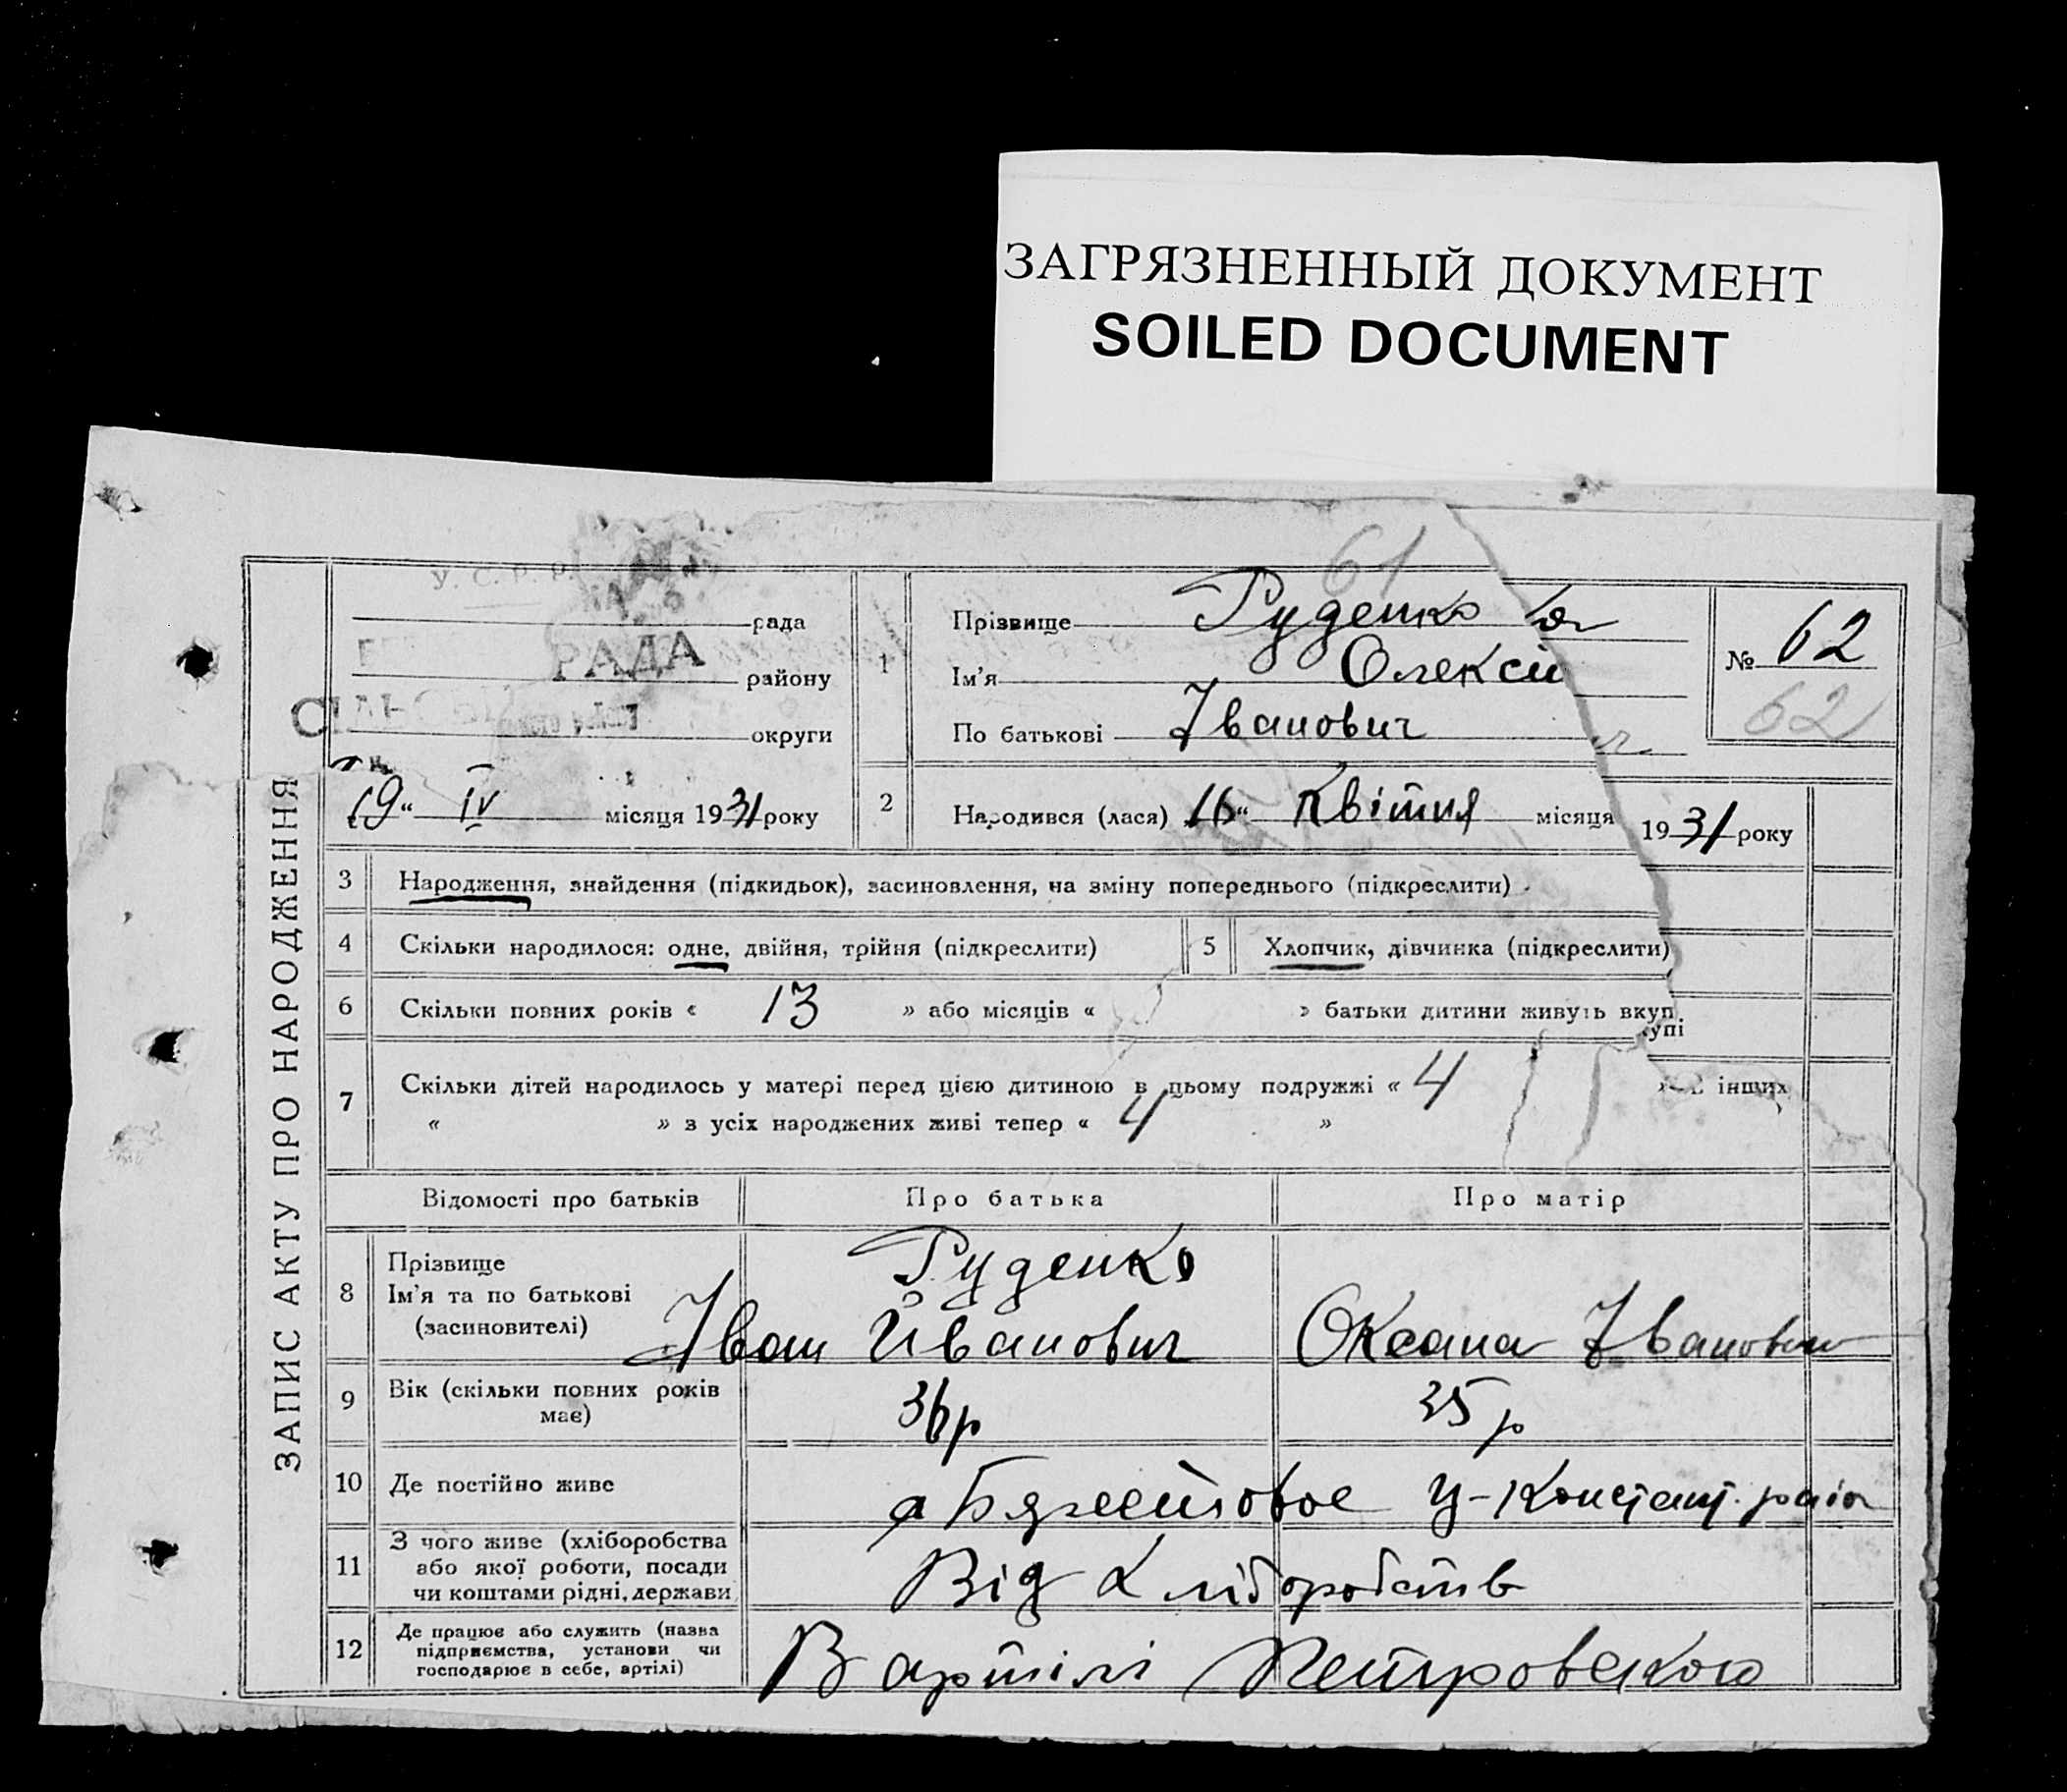 ЗАГРЯЗНЕННЫЙ ДОКУМЕНТ
SOILED DOCUMENT
ЗАПИС АКТУ ПРО НАРОДЖЕННЯ
У. С. Р. Р.
рада
РАДА
району
округи
„19“ IV місяця 1931 року
61
1
Прізвище Руденко
Ім'я Олексій
По батькові Іванович
№ 62
62
2 Народився (лася) 16“ Квітня місяця 1931 року
3 Народження, знайдення (підкидьок), засиновлення, на зміну попереднього (підкреслити)
4 Скільки народилося: одне, двійня, трійня (підкреслити) 5 Хлопчик, дівчинка (підкреслити)
6 Скільки повних років « 13 » або місяців « » батьки дитини живуть вкуп
упі
7 Скільки дітей народилось у матері перед цією дитиною в цьому подружжі « 4 інших
« » з усіх народжених живі тепер « 4 »
Відомості про батьків Про батька Про матір
8 Прізвище
Ім'я та по батькові
(засиновителі)
Руденко
Іван Иванович Оксана
9 Вік (скільки повних років
має)
36 р 35 р
10 Де постійно живе
11 З чого живе (хліборобства
або якої роботи, посади
чи коштами рідні, держави
Від Хліборобств
12 Де працює або служить (назва
підприємства, установи чи
господарює в себе, артілі)
В артілі Петровского